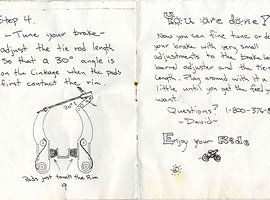 Step 4.
-Tune your brake-
adjust the tie rod length
So that a 30° angle is
on the linkage when the pads
first contact the rim.
30°
Pads just touch the Rim
9
You are done!
Now you can fine tune or de
your brake with very small
adjustments to the brake le
barrel adjuster and the tie
length. Play around with it a
little until you get the feel yo
want.
Questions? 1-800-376-8
-David-
Enjoy your Ride